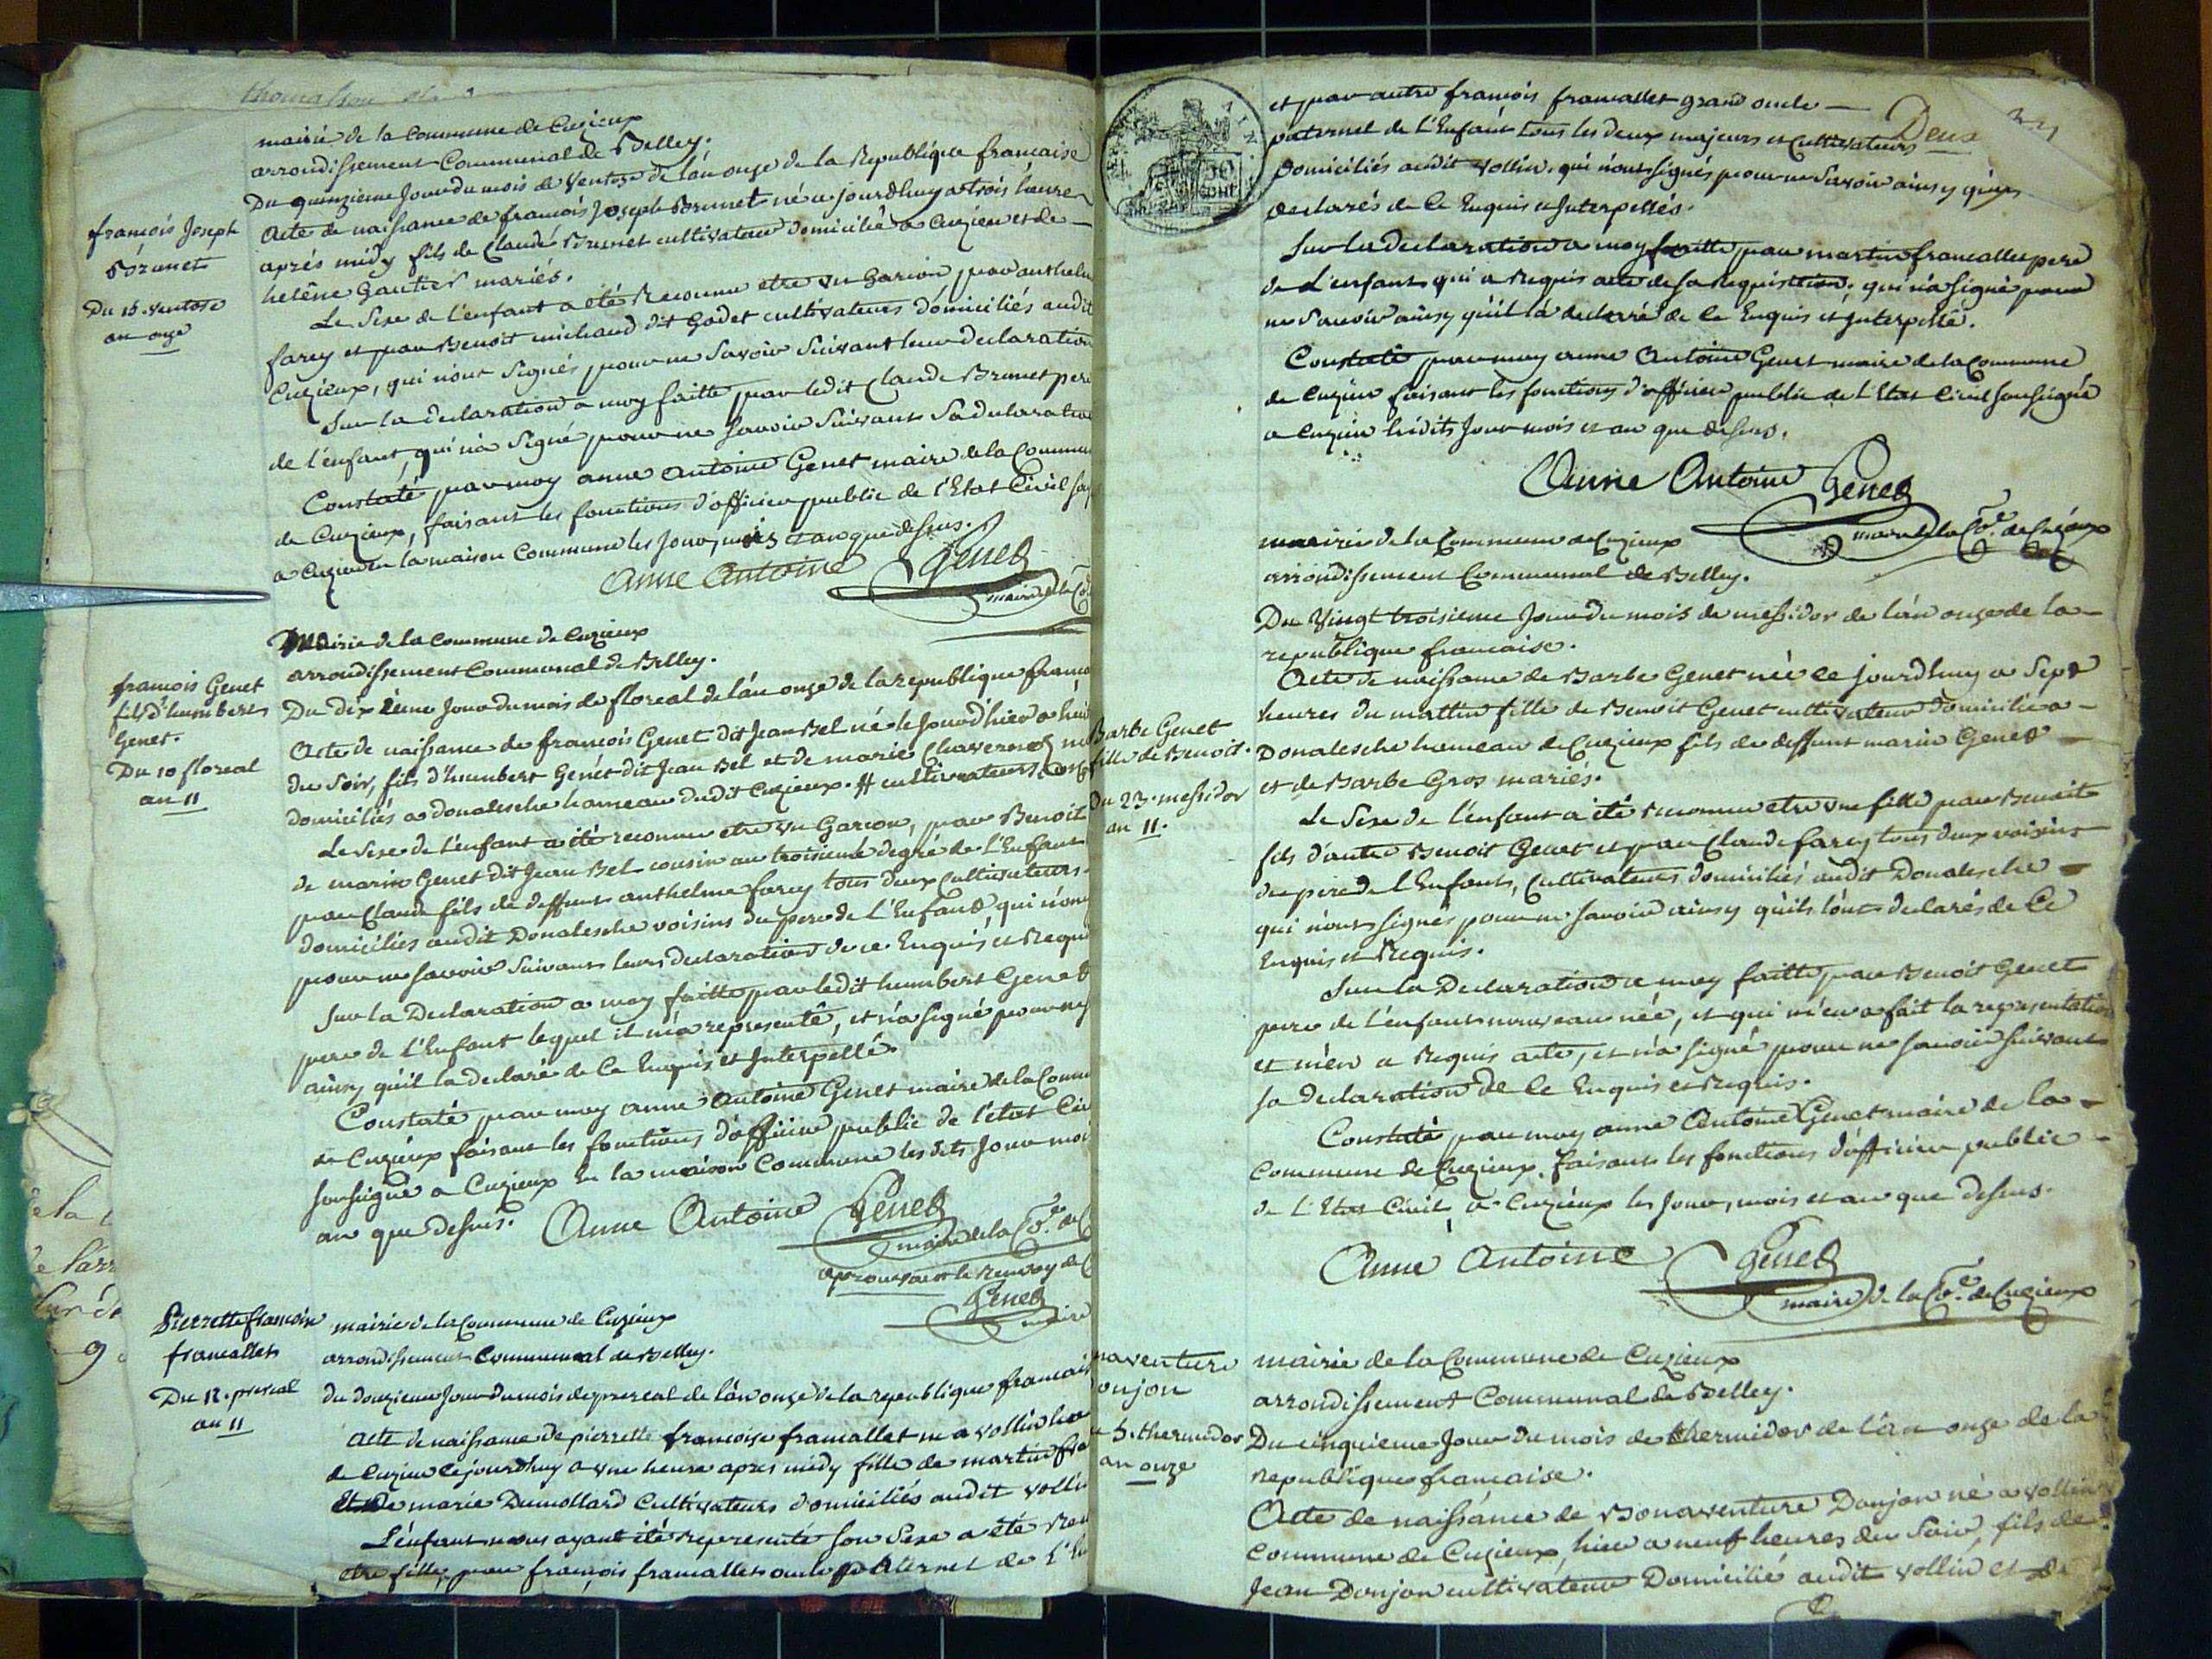 mairie de la Commune de Cuzieux
arrondissement Communal de Belley.
Du quinzieme Jour du mois de Ventose de l'an onze de la Republique francaise
Acte de naissance de francois Joseph Brunet né ce jourdhuy a trois heures
aprés midy fils de Claude Brunet cultivateur domicilié a Cuzieu et de
helêne Gautier mariés.
Le Sexe de l'enfant a eté Reconnu etre un Garcon par anthelm
farcy et par Benoit michaud dit Godet cultivateurs domiciliés audit
Cuzieux, qui n'ont Signés pour ne Savoir Suivant leur declaration
Sur la declaration a moy faitte par ledit Claude Brunet pere
de l'enfant, qui n'a Signé pour ne Savoir Suivant Sa declaration
Constaté par moy anne antoine Genet maire de la Commune
de Cuzieux, faisant les fonctions d'officier public de l'Etat Civil
a Cuzieu en la maison Commune les Jour, mois et an que dessus.
Anne Antoine Genet
maire de la
francois Joseph
Brunet
Du 15. ventose
an onze
Mairie de la Commune de Cuzieux
arrondissement Communal de Belley.
Du dix ième Jour du mois de floreal de l'an onze de la republique
Acte de naissance de francois Genet dit Jean Bel né le Jour d'hier a
du Soir, fils d'humbert Genet dit Jean Bel et de marie
domiciliés a donalesche hameau dudit Cuzieux. # cultivateurs
Le Sexe de l'enfant a été reconnu etre un Garcon, par Benoit
de marin Genet dit Jean Bel cousin au troisieme degré de l'Enfant
par Claude fils de deffunt anthelme farcy tous deux Cultivateurs
domiciliés audit Donalesche voisins du pere de l'Enfant, qui n'ont
pour ne savoir Suivant leurs declaration de ce Enquis et Requis
Sur la Declaration a moy faitte par ledit humbert Genet
pere de l'Enfant lequel il m'a representé, et n'a signé pour ne
ainsy qu'il la declaré de Ce Enquis et Interpellé.
Constaté par moy anne Antoine Genet maire de la
de Cuzieux faisant les fonctions d'officier public de l'état
soussigné a Cuzieux En la maison Commune les dits Jour mois
an que dessus. Anne Antoine Genet
maire de la Cne. de
aprouvant le Renvoy
Genet
maire
francois Genet
fils d'humbert
Genet.
Du 10 floreal
an 11
mairie de la Commune de Cuzieux
arrondissement Communal de Belley.
du douzieme Jour du mois de prereal de l'an onze de la republique francais
Acte de naissance de pierrette francoise francallet né a vollin
de Cuzieu cejourdhuy a une heure apres midy fille de martin
Et De marie Dumollard Cultivateurs domiciliés audit vollin
L'enfant nous ayant été representé son Sexe a été
etre fille, par francois francallet oncle paternel de
Pierrette francoise
francallet
Du 12. prereal
an 11
Deux
et par autre francois francallet grand oncle
paternel de l'Enfant tous les deux majeurs et Cultivateurs
Domiciliés audit vollin, qui n'ont signés pour ne Savoir ainsy
declarés de Ce Enquis et Interpellés.
Sur la declaration a moy faitte par martin francallet pere
de L'enfant qui a Requis acte de sa Requisition, qui n'a signé pour
ne Savoir ainsy qu'il l'a declaré de Ce Enquis et Interpellé.
Constaté par moy anne Antoine Genet maire de la Commune
de Cuzieu faisant les fonctions d'officier public de l'Etat Civil soussigné
a Cuzieu lesdits Jour mois et an que dessus.
Anne Antoine Genet
maire de la Cne. de Cuzieux
mairie de la Commune de Cuzieux
arrondissement Communal de Belley.
Du Vingt troisieme Jour du mois de messidor de l'an onze de la
republique francaise.
Acte de naissance de Barbe Genet née ce jourdhuy a Sept
heures du mattin fille de Benoit Genet cultivateur domicilié a
Donalesche hameau de Cuzieux fils de deffunt marin Genet
et de Barbe Gros mariés.
Le Sexe de l'enfant a été reconnu etre une fille par Benoit
fils d'autre Benoit Genet et par Claude farcy tous deux voisins
du pere de l'Enfant, Cultivateurs domiciliés audit Donalesche
qui n'ont signés pour ne savoir ainsy qu'ils l'ont declarés de Ce
Enquis et Requis.
Sur la Declaration a moy faitte par Benoit Genet
pere de l'enfant nouveau née, et qui m'en a fait la representation
et m'en a Requis acte, et n'a signé pour ne savoir suivant
sa declaration de Ce Enquis et Requis.
Constaté par moy anne Antoine Genet maire de la
Commune de Cuzieux. faisant les fonctions d'officier public
de L'Etat Civil, a Cuzieux les Jour, mois et an que dessus.
Anne Antoine Genet
maire de la Cne. de Cuzieux
Barbe Genet
fille de Benoit.
Du 23. messidor
an 11.
mairie de la Commune de Cuzieux
arrondissement Communal de Belley.
Du cinquieme Jour du mois de thermidor de l'an onze de la
Republique francaise.
Acte de naissance de Bonaventure Donjon né a vollin
Commune de Cuzieux, hier a neuf heures du Soir, fils de
Jean Donjon cultivateur Domicilié audit vollin et de
naventure
onjon
5. thermidor
an onze